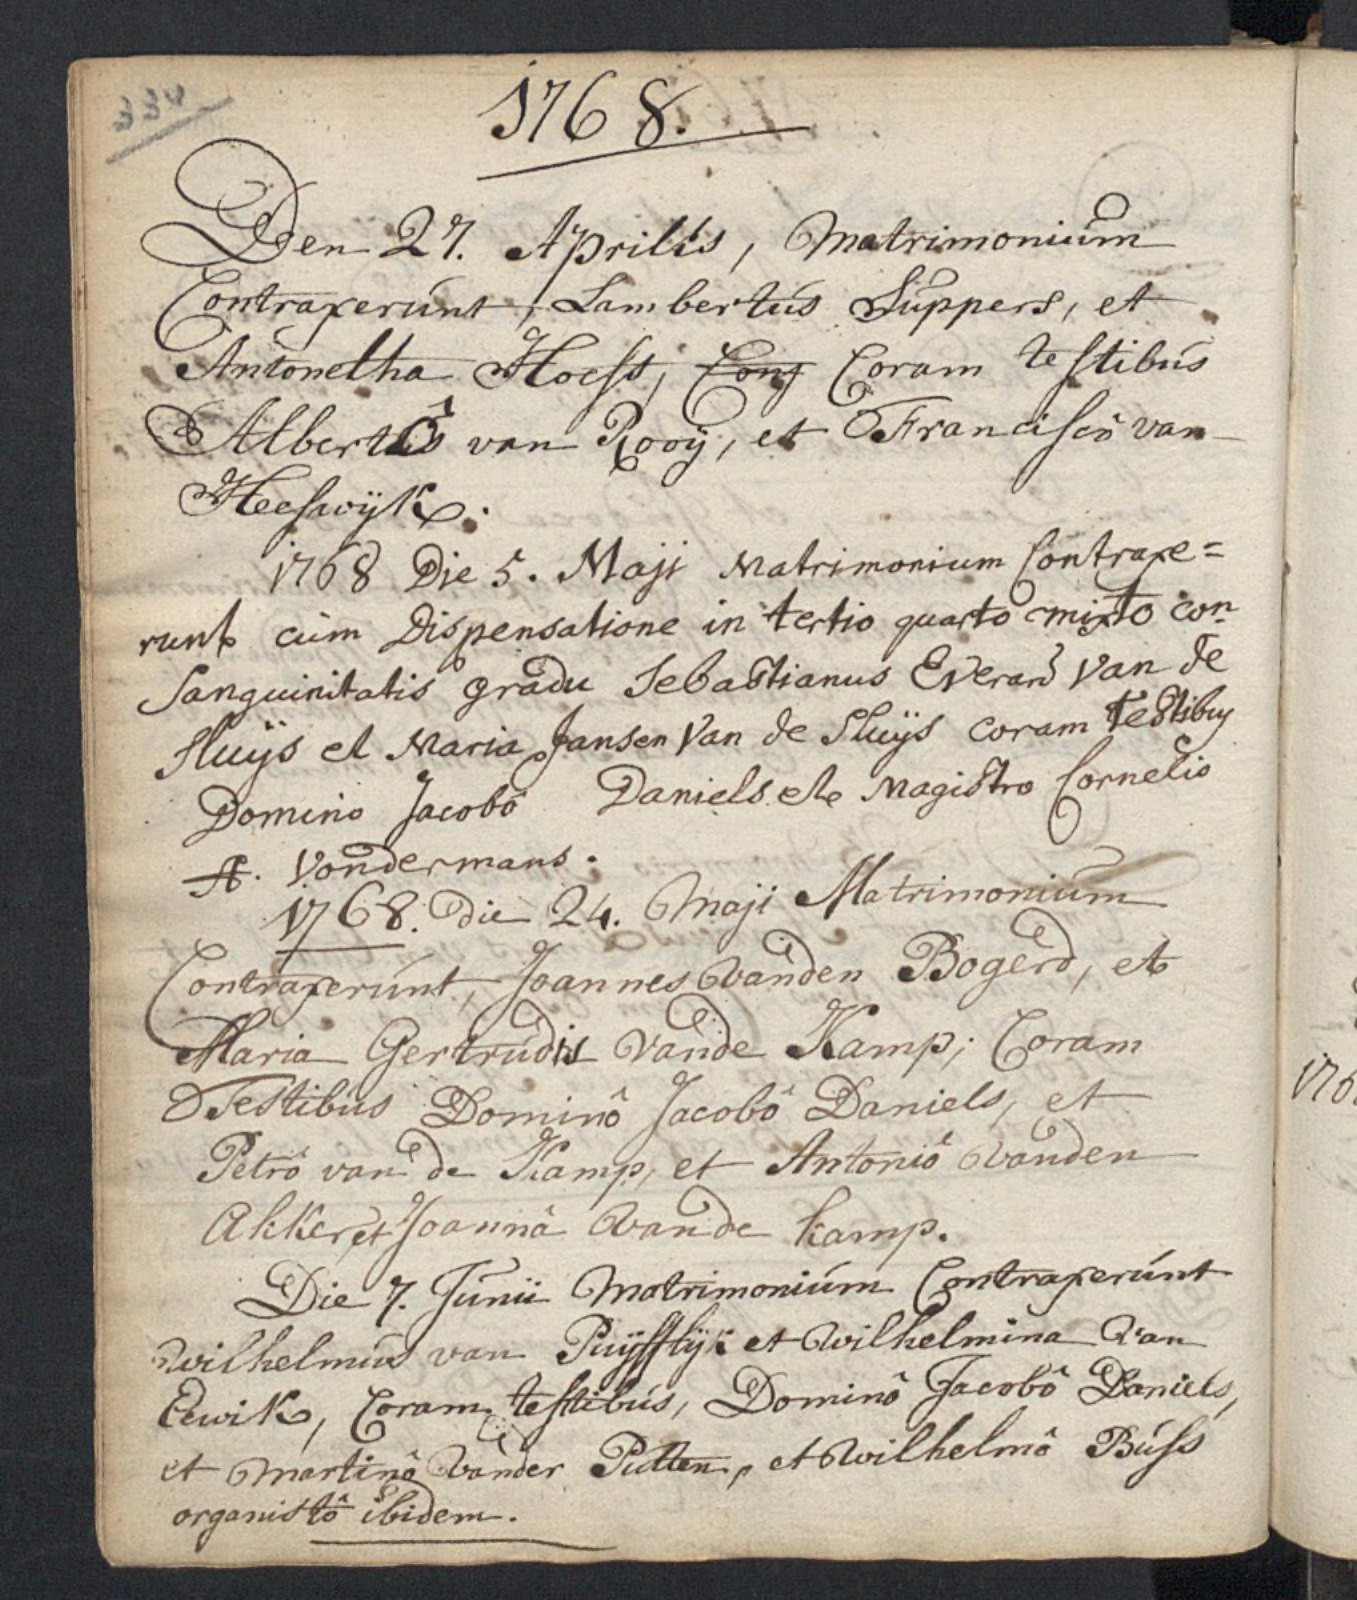 1768.
Den 27. Aprilis, Matrimonium
Contraxerunt, Lambertus Suppers, et
Antonetha Hoess, Conj Coram testibus
Albertô van Rooÿ, et Franciscô van
Heeswÿk.
1768 Die 5. Maji Matrimonium Contraxe=
runt cum Dispensatione in tertio quarto mixto con=
sanguinitatis gradu Sebastianus Everard Van de
Sluÿs et Maria Jansen Van de Sluÿs coram testibus
Domino Jacobo Daniels et Magistro Cornelio
A. Vondermans.
1768. die 24. Maji Matrimonium
Contraxerunt, Joannes vanden Bogerd, et
Maria Gertrudis vande Kamp; Coram
Testibus Dominô Jacobô Daniels, et
Petrô van de Kamp, et Antoniô vanden
Akker, et Joannâ van de kamp.
Die 7. Junii Matrimonium Contraxerunt
Wilhelmus van Puÿfflÿk et Wilhelmina van
Eewik, Coram testibus, Dominô Jacobô Daniels,
et Martinô vander Putten, et Wilhelmô Buss
organistô ibidem.
176